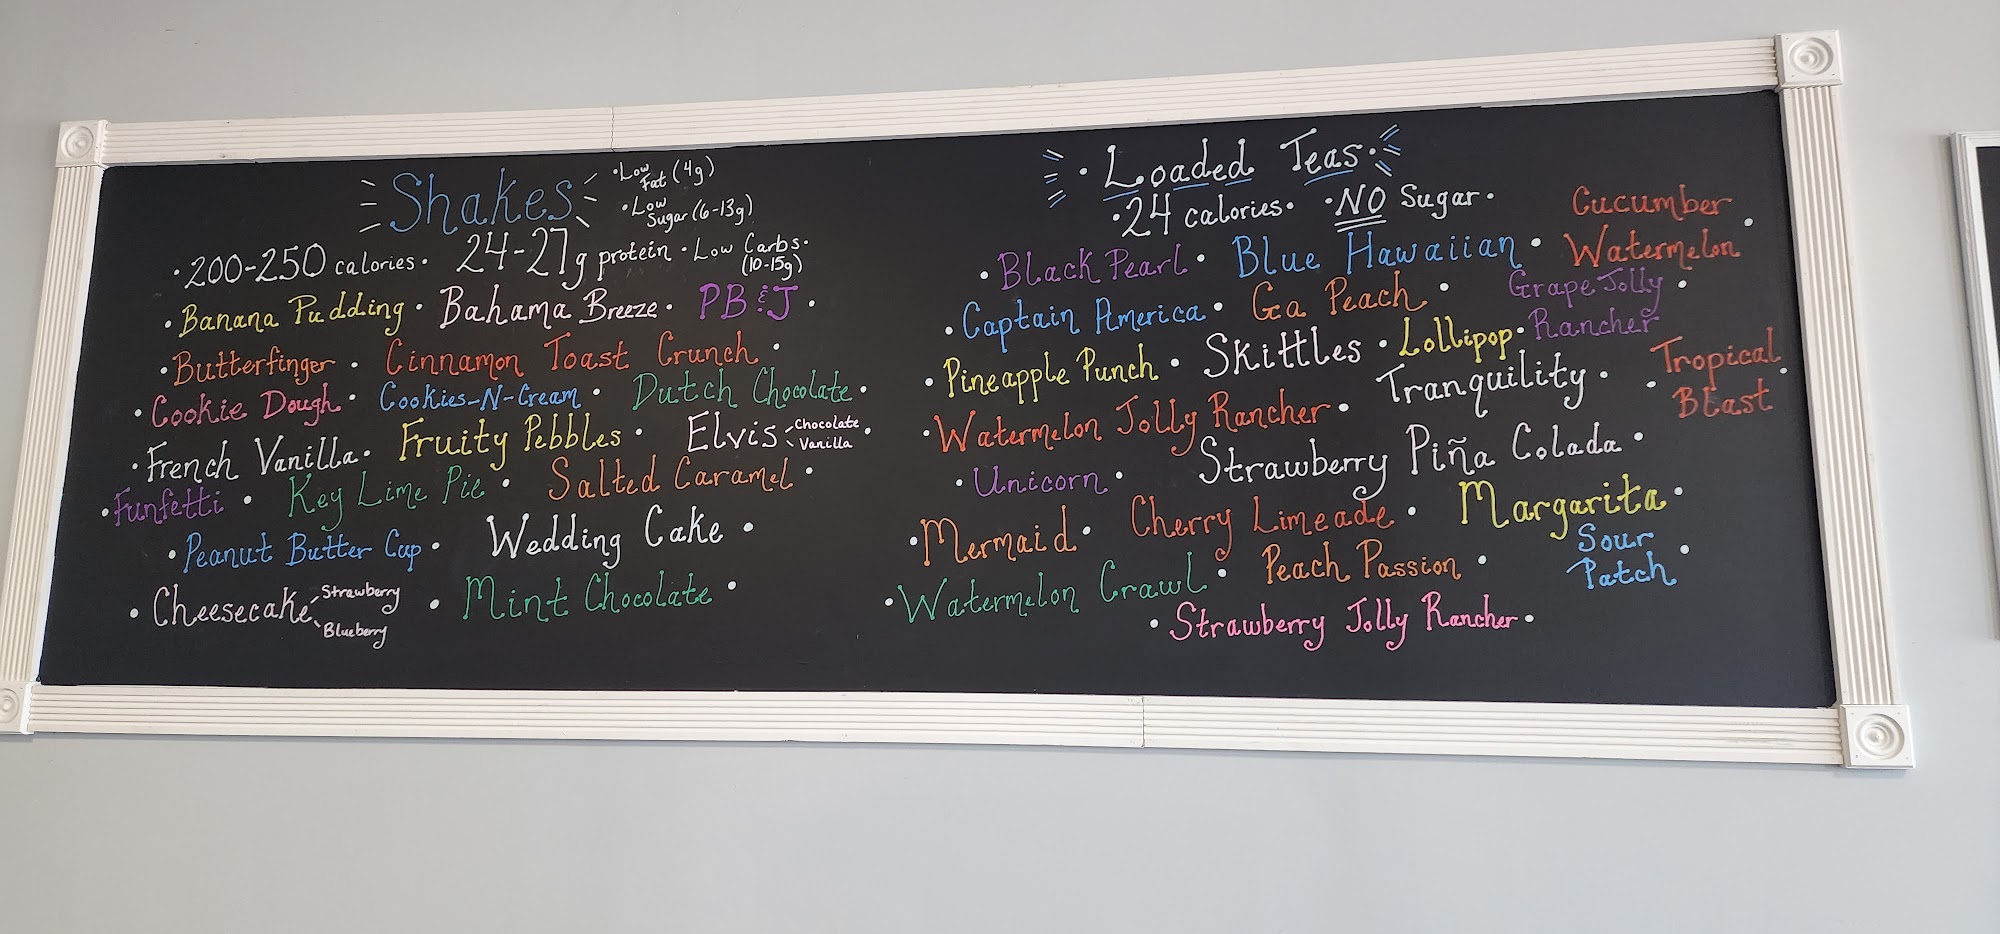 Shakes
• Low Fat (4g)
• Low Sugar (6-13g)
• 200-250 calories • 24-27g protein • Low Carbs • (10-15g)
• Banana Pudding • Bahama Breeze • PB&J •
• Butterfinger • Cinnamon Toast Crunch •
• Cookie Dough • Cookies-N-Cream • Dutch Chocolate •
• French Vanilla • Fruity Pebbles • Elvis Chocolate Vanilla •
• Funfetti • Key Lime Pie • Salted Caramel •
• Peanut Butter Cup • Wedding Cake •
• Cheesecake Strawberry Blueberry • Mint Chocolate •
• Loaded Teas •
• 24 calories • • NO Sugar •
• Black Pearl • Blue Hawaiian • Cucumber Watermelon •
• Captain America • Ga Peach • Grape Jolly Rancher •
• Pineapple Punch • Skittles • Lollipop •
• Watermelon Jolly Rancher • Tranquility • • Tropical Blast •
• Unicorn • Strawberry Piña Colada •
• Mermaid • Cherry Limeade • Margarita •
• Watermelon Crawl • Peach Passion • Sour Patch •
• Strawberry Jolly Rancher •